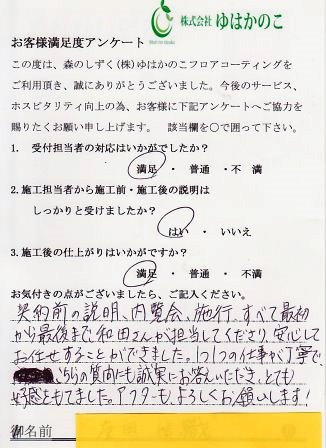 株式会社 ゆはかのこ
お客様満足度アンケート
この度は、森のしずく(株)ゆはかのこフロアコーティングを
ご利用頂き、誠にありがとうございました。今後のサービス、
ホスピタリティ向上の為、お客様に下記アンケートへご協力を
賜りたくお願い申し上げます。 該当欄を○で囲って下さい。
1. 受付担当者の対応はいかがでしたか?
満足 ・ 普通 ・不 満
2.施工担当者から施工前・施工後の説明は
しっかりと受けましたか?
はい ・ いいえ
3.施工後の仕上がりはいかがですか?
満足 ・ 普通 ・ 不満
お気付きの点がございましたら、ご記入ください。
契約前の説明、内覧会、施行、すべて最初
から最後まで、和田さんが担当してくださり、安心して
お任せすることができました。1つ1つの仕事が丁寧で、
こちらの質問にも誠実にお答えいただき、とても
好感もてました。アフターも、よろしくお願いします!
御名前